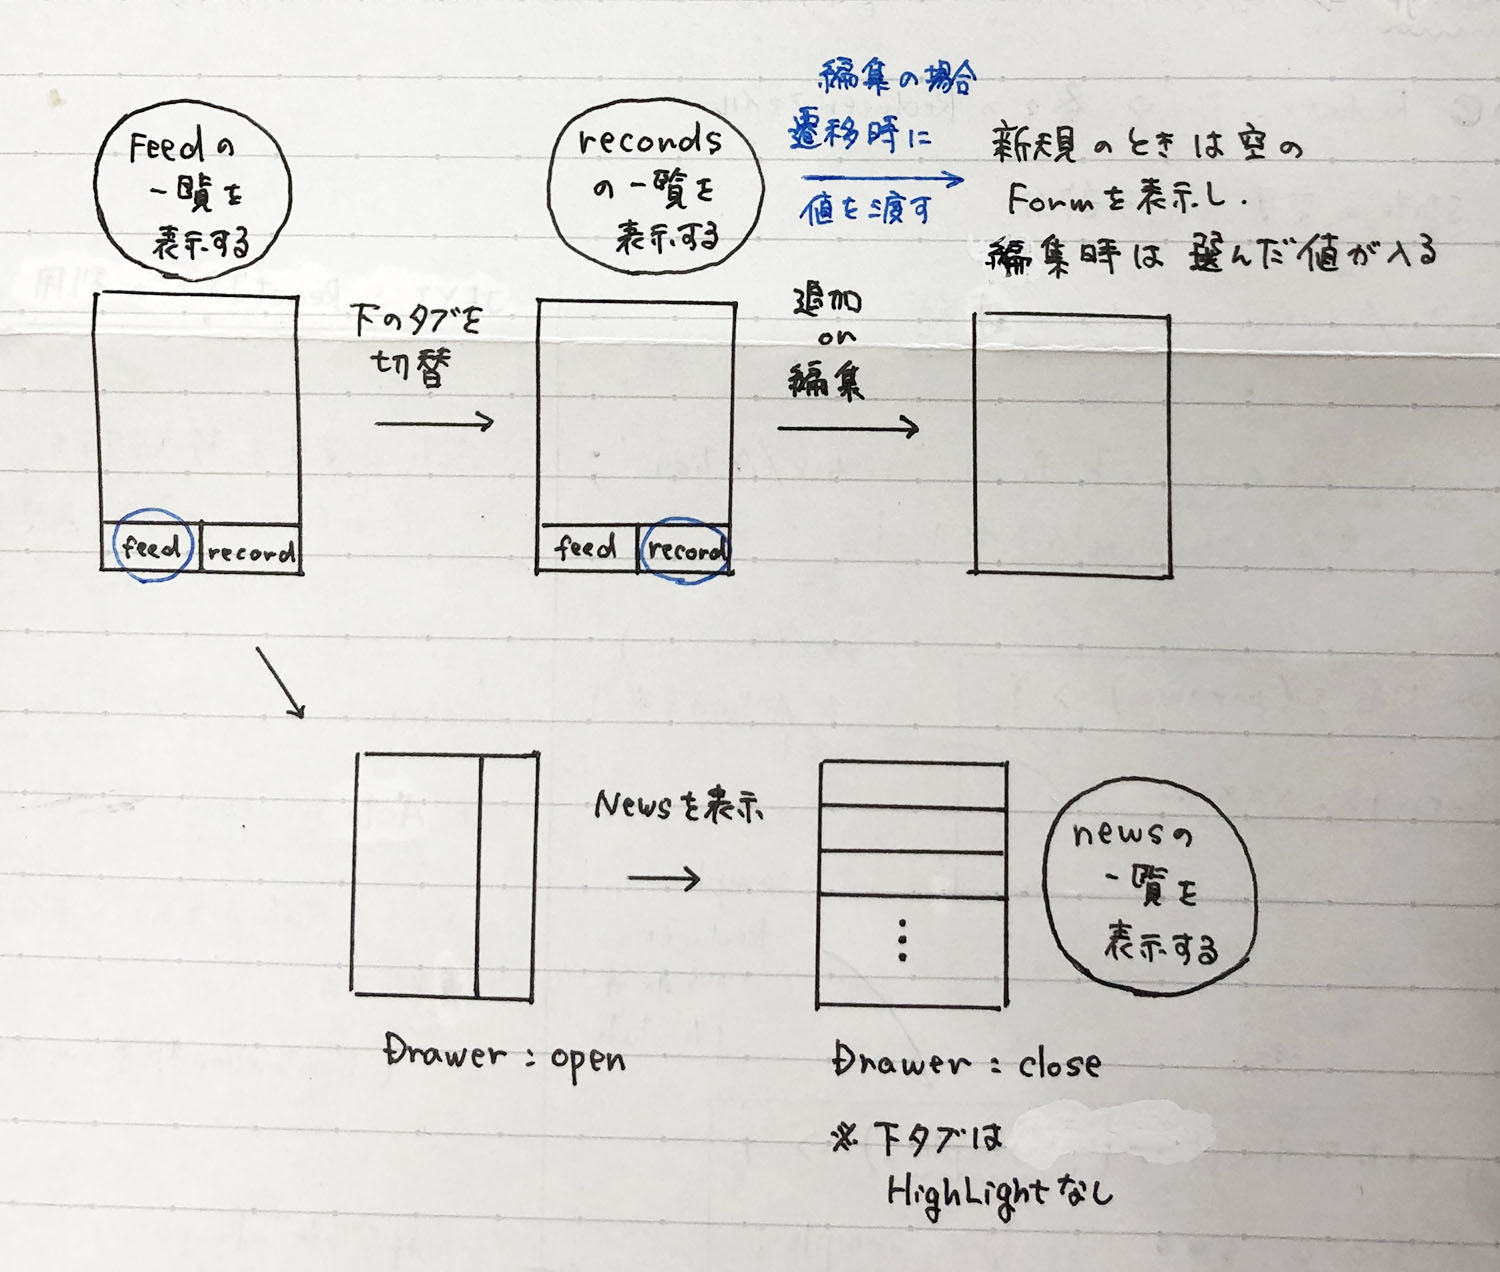 Feedの
一覧を
表示する
recordsの一覧を
表示する
編集の場合
遷移時に
値を渡す
新規のときは空の
Formを表示し.
編集時は選んだ値が入る
下のタブを
切替
追加
or
編集
feed
record
feed
record
Newsを表示
newsの
一覧を
表示する
Drawer : open
Drawer : close
※ 下タブは
HighLightなし